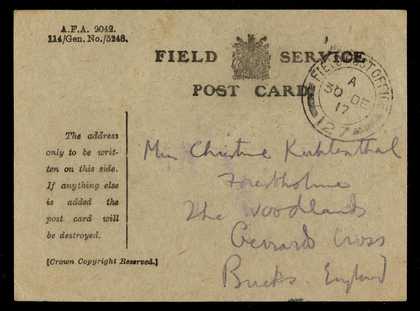 A.F.A. 2042.
114/Gen. No./5248.
FIELD SERVICE
POST CARD
FIELD POST OFFICE
A
30 DE
17
127
The address
only to be writ-
ten on this side.
If anything else
is added the
post card will
be destroyed.
[Crown Copyright Reserved.]
Miss Christine
The Woodlands
Gerrards Cross
Bucks. England